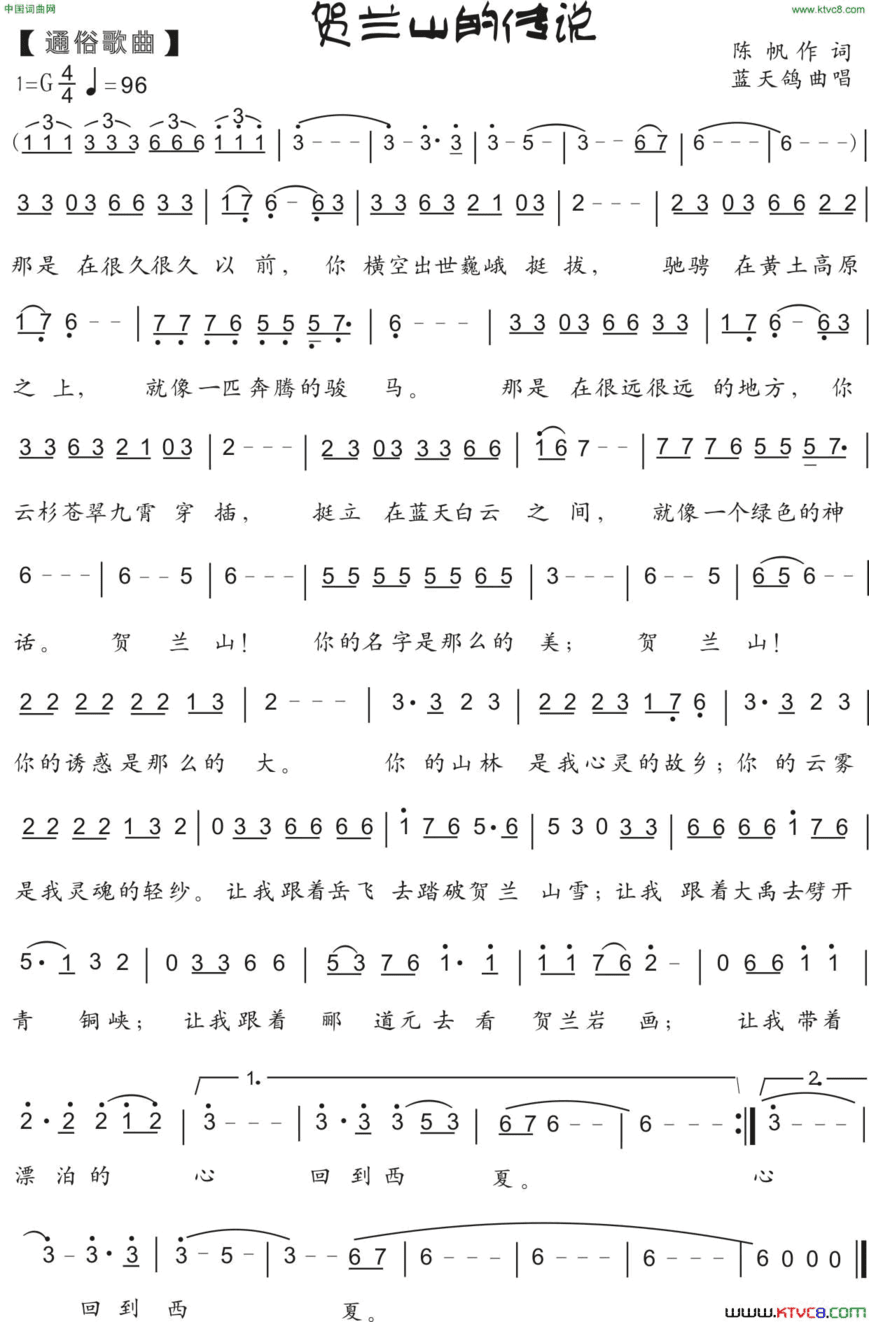 中国词曲网
www.ktvc8.com
贺兰山的传说
【通俗歌曲】
陈帆作词
1=G 4/4 ♩=96
蓝天鸽曲唱
3 3 3 3
(1 1 1 3 3 3 6 6 6 1 1 1 | 3 - - - | 3 - 3· 3 | 3 - 5 - | 3 - - 6 7 | 6 - - - | 6 - - -) |
3 3 0 3 6 6 3 3 | 1 7 6 - 6 3 | 3 3 6 3 2 1 0 3 | 2 - - - | 2 3 0 3 6 6 2 2 |
那是 在很久很久 以 前， 你 横空出世巍峨 挺 拔， 驰骋 在黄土高原
1 7 6 - - | 7 7 7 6 5 5 5 7· | 6 - - - | 3 3 0 3 6 6 3 3 | 1 7 6 - 6 3 |
之 上， 就像一匹奔腾的骏 马。 那是 在很远很远 的地方， 你
3 3 6 3 2 1 0 3 | 2 - - - | 2 3 0 3 3 3 6 6 | 1 6 7 - - | 7 7 7 6 5 5 5 7· |
云杉苍翠九霄 穿 插， 挺立 在蓝天白云 之 间， 就像一个绿色的神
6 - - - | 6 - - 5 | 6 - - - | 5 5 5 5 5 5 6 5 | 3 - - - | 6 - - 5 | 6 5 6 - - |
话。 贺 兰 山！ 你的名字是那么的 美； 贺 兰 山！
2 2 2 2 2 2 1 3 | 2 - - - | 3· 3 2 3 | 2 2 2 3 1 7 6 | 3· 3 2 3 |
你的诱惑是那么的 大。 你 的山林 是我心灵的故乡；你 的云雾
2 2 2 2 1 3 2 | 0 3 3 6 6 6 6 | 1 7 6 5· 6 | 5 3 0 3 3 | 6 6 6 6 1 7 6 |
是我灵魂的轻纱。 让我跟着岳飞 去踏破贺兰 山雪；让我 跟着大禹去劈开
5· 1 3 2 | 0 3 3 6 6 | 5 3 7 6 1· 1 | 1 1 7 6 2 - | 0 6 6 1 1 |
青 铜峡； 让我跟着 郦 道元去 看 贺兰岩 画； 让我带着
1. 2.
2· 2 2 1 2 | 3 - - - | 3· 3 3 5 3 | 6 7 6 - - | 6 - - - :‖ 3 - - - |
漂 泊的 心 回 到西 夏。 心
3 - 3· 3 | 3 - 5 - | 3 - - 6 7 | 6 - - - | 6 - - - | 6 - - - | 6 0 0 0 ‖
回到 西 夏。
www.KTVC8.com